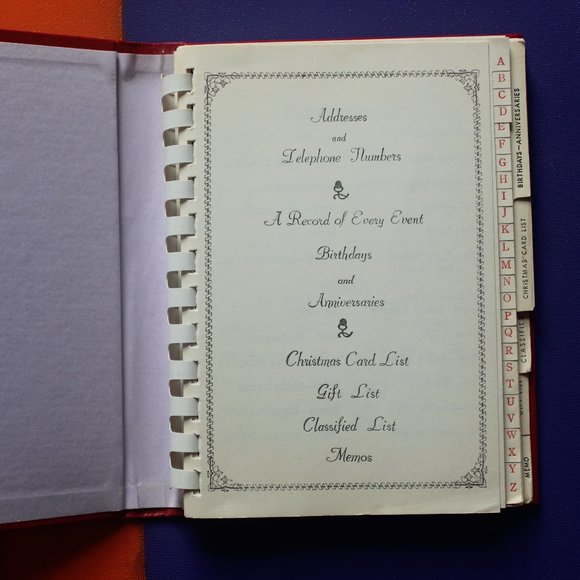 Addresses
and
Telephone Numbers
A Record of Every Event
Birthdays
and
Anniversaries
Christmas Card List
Gift List
Classified List
Memos
A
B
C
D
E
F
G
H
I
J
K
L
M
N
O
P
Q
R
S
T
U
V
W
X
Y
Z
BIRTHDAYS—ANNIVERSARIES
CHRISTMAS CARD LIST
CLASSIFIE
MEMO